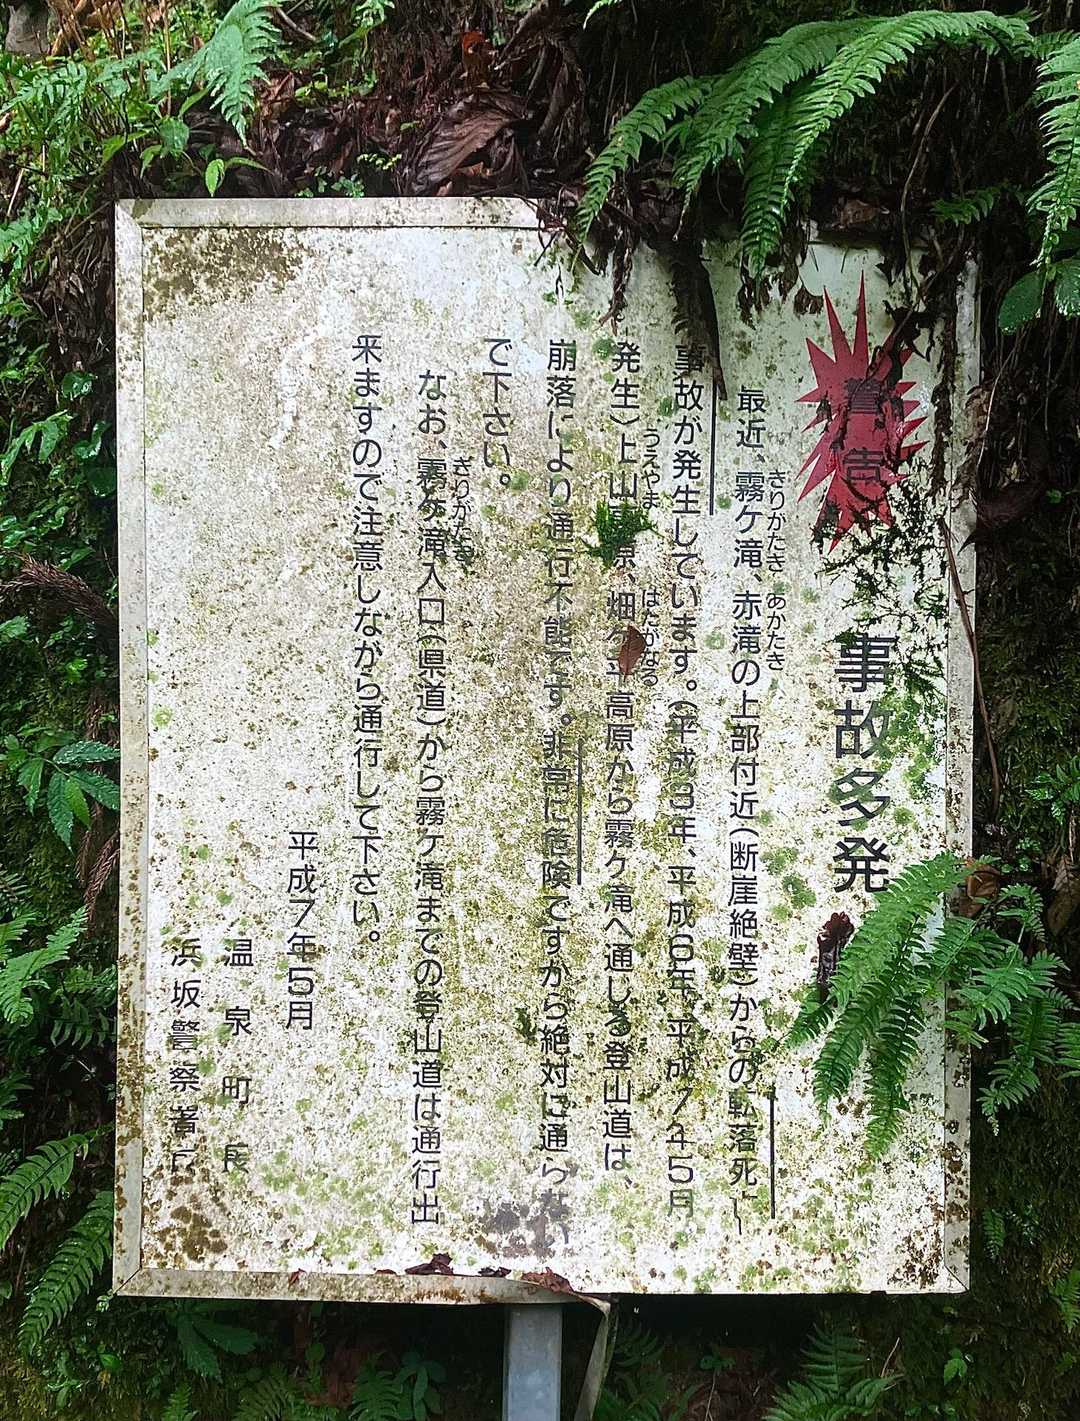 警告
事故多発
最近、霧ケ滝、赤滝の上部付近(断崖絶壁)からの「転落死」
きりがたき あかたき
事故が発生しています。(平成3年、平成6年、平成7年5月
発生)上山高原、畑ケ平高原から霧ケ滝へ通じる登山道は、
うえやま はたがなる
崩落により通行不能です。非常に危険ですから絶対に通らない
で下さい。
なお、霧ケ滝入口(県道)から霧ケ滝までの登山道は通行出
きりがたき
来ますので注意しながら通行して下さい。
平成7年5月
温泉町長
浜坂警察署長